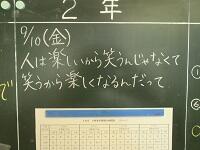 2年
9/10(金)
人は楽しいから笑うんじゃなくて
笑うから楽しくなるんだって
で
①